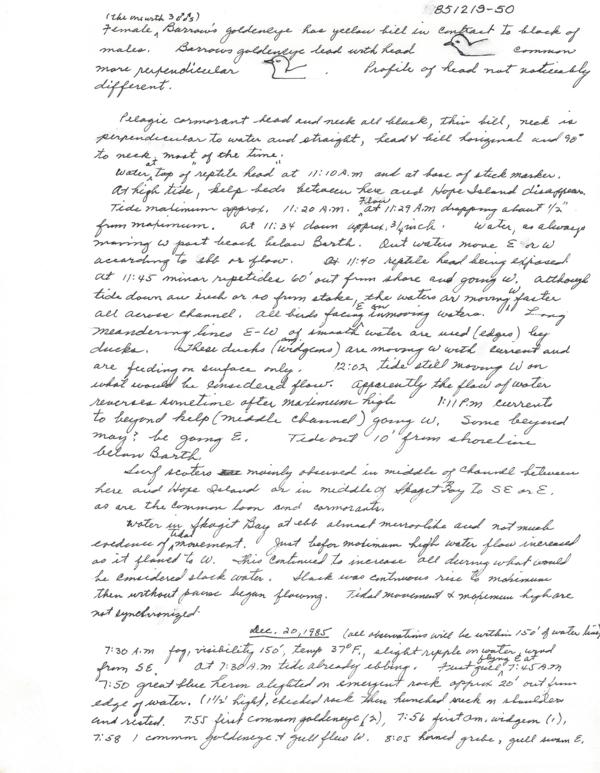 851213-50
(the month 3 odds)
Female, Barrow's goldeneye has yellow bill in contrast to black of
males. Barrows goldeneye lead with head common
more perpendicular . Profile of head not noticeably
different.
Pelagic cormorant head and neck all black, thin bill, neck is
perpendicular to water and straight, head & bill horizonal and 90°
to neck, most of the time.
Water at top of "reptile head" at 11:10 A.M and at base of stick marker.
At high tide, kelp beds between here and Hope Island disappear.
Tide maximum approx. 11:20 A.M. Flow at 11:29 A.M dropping about 1/2"
from maximum. at 11:34 down approx. 3/4 inch. Water, as always
moving W past beach below Barth. Out waters move E or W
according to ebb or flow. At 11:40 reptile head being exposed
at 11:45 minor riptides 60' out from shore and going W. Although
tide down an inch or so from stake, the waters are moving W faster
all across channel. All birds facing E on inmoving waters. Long
meandering lines E-W of smooth water are used (edges) by
ducks. These ducks (and widgeons) are moving W with current and
are feeding on surface only. 12:02 tide still moving W on
what would be considered flow. Apparently the flow of water
reverses sometime after maximum high 1:11 P.m currents
to beyond kelp (middle channel) going W. Some beyond
may? be going E. Tide out 10' from shoreline
below Barth
Surf scoters mainly observed in middle of channel between
here and Hope Island or in middle of Skagit Bay to SE or E.
as are the common loon and cormorants.
Water in Skagit Bay at ebb almost mirrorlike and not much
evidence of tidal movement. Just befor maximum high water flow increased
as it flowed to W. This continued to increase all during what would
be considered slack water. Slack was continuous rise to maximum
then without pause began flowing. Tidal movement & maximum high are
not synchronized.
Dec. 20, 1985 (all observations will be within 150' of water line)
7:30 A.M fog, visibility 150', temp 37°F., slight ripple on water, wind
from SE. At 7:30 A.M tide already ebbing. First gull flying E at 7:45 A.M
7:50 great blue heron alighted on emergent rock approx 20' out from
edge of water. (1 1/2' high), checked rock then hunched neck on shoulders
and rested. 7:55 first common goldeneye (2), 7:56 first am. widgeon (1),
7:58 1 common goldeneye & gull flew W. 8:05 horned grebe, gull swam E.